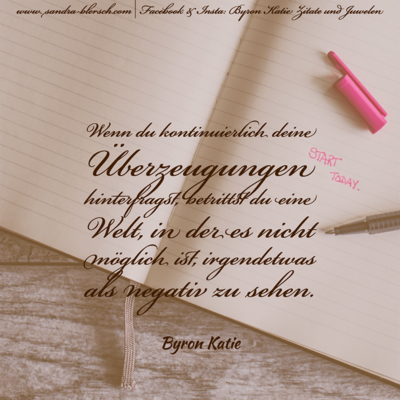 www.sandra-blersch.com | Facebook & Insta: Byron Katie Zitate und Juwelen
Wenn du kontinuierlich deine
Überzeugungen
START
TODAY.
hinterfragst, betrittst du eine
Welt, in der es nicht
möglich ist, irgendetwas
als negativ zu sehen.
Byron Katie